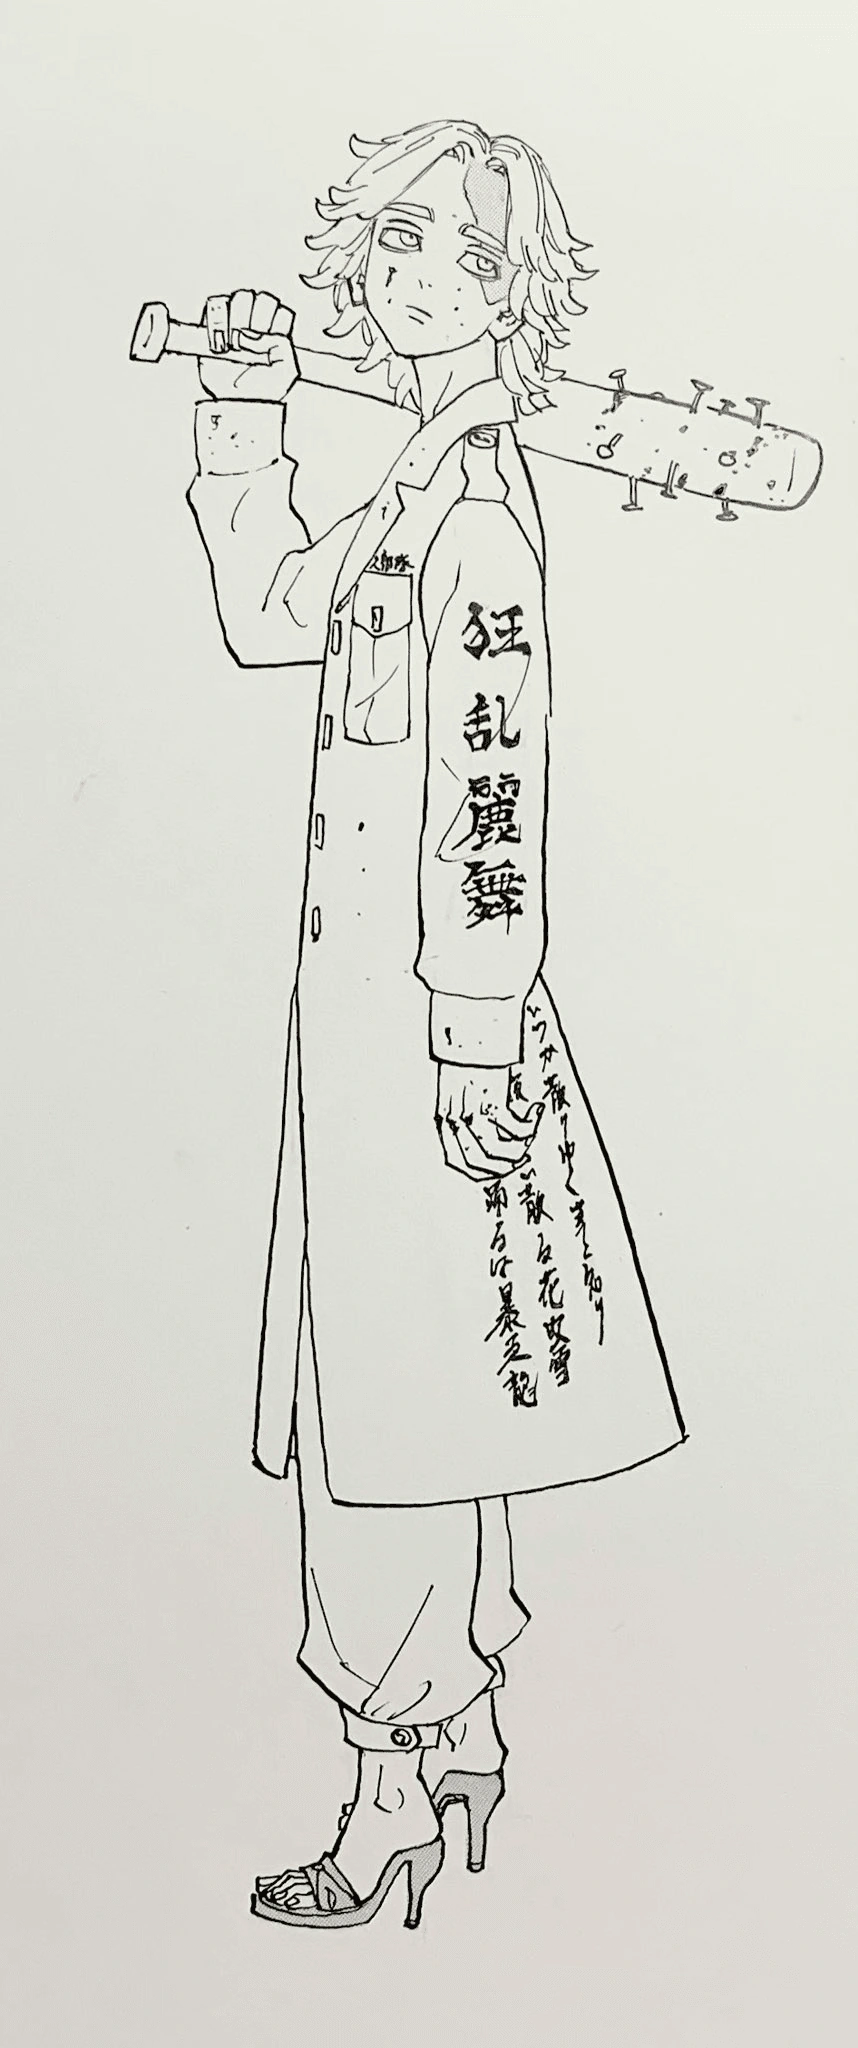 狂乱麗舞
いつか散りゆく華と知り
い散る花吹雪
踊るは暴走龍